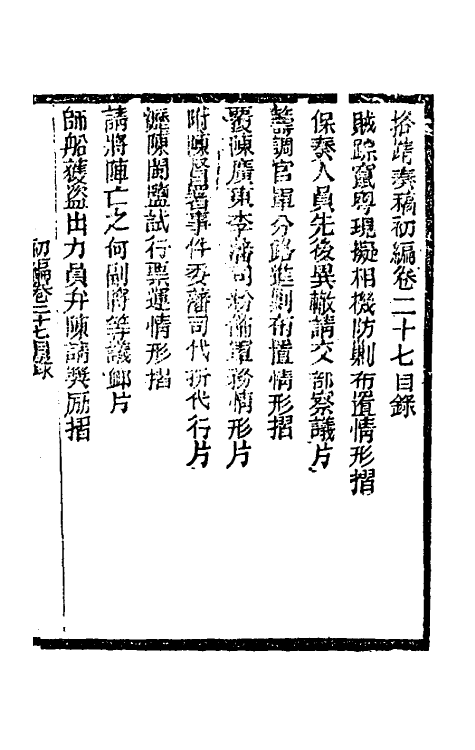 恪靖奏稿初編卷二十七目錄
賊踪竄粵現擬相機防剿布置情形摺
保奏人員先後異轍請交部察議片
籌調官軍分路進剿布置情形摺
覆陳廣東李藩司粉飾軍務情形片
附陳督署事件委藩司代拆代行片
瀝陳閩鹽試行票運情形摺
請將陣亡之何副將等議卹片
師船獲盜出力員弁陳請獎勵摺
初編卷二十七目錄